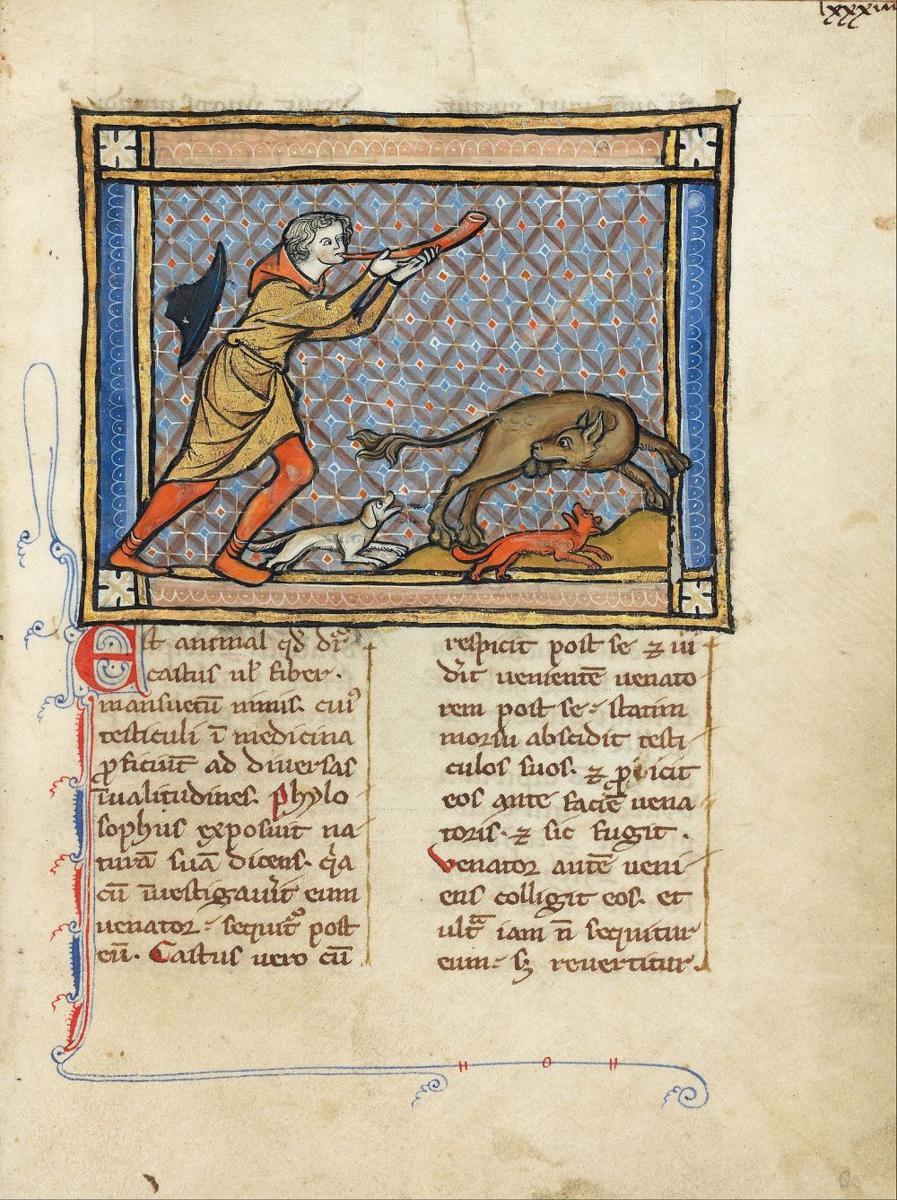 lxxxiii
Est animal qd̄ dr̄
castus ul̓ fiber.
mansuetū nimis. cui᷒
testiculi ī medicina
ꝓficiūt ad diuersas
īualitudines. phylo
sophus exposuit na
turā suā dicens. q̓a
cū īuestigauīt eum
uenator: sequit᷒ post
eū. Castus uero cū
respicit post se ⁊ ui
d̓it uenientē uenato
rem post se: statim
morsu abscidit testi
culos suos. ⁊ ꝓicit
eos ante faciē uena
toris. ⁊ sic fugit.
Venator autē ueni
ens colligit eos. et
ultᵃ iam n̄ sequitur
eum: sꝫ reuertitur.